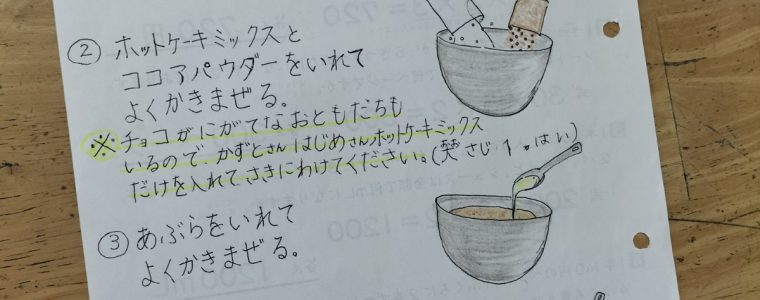 ② ホットケーキミックスと
ココアパウダーをいれて
よくかきまぜる。
※チョコがにがてなおともだちも
いるので、かずとさんはじめさんホットケーキミックス
だけを入れて、さきにわけてください。(
さじ1
はい)
③ あぶらをいれて
よくかきまぜる。